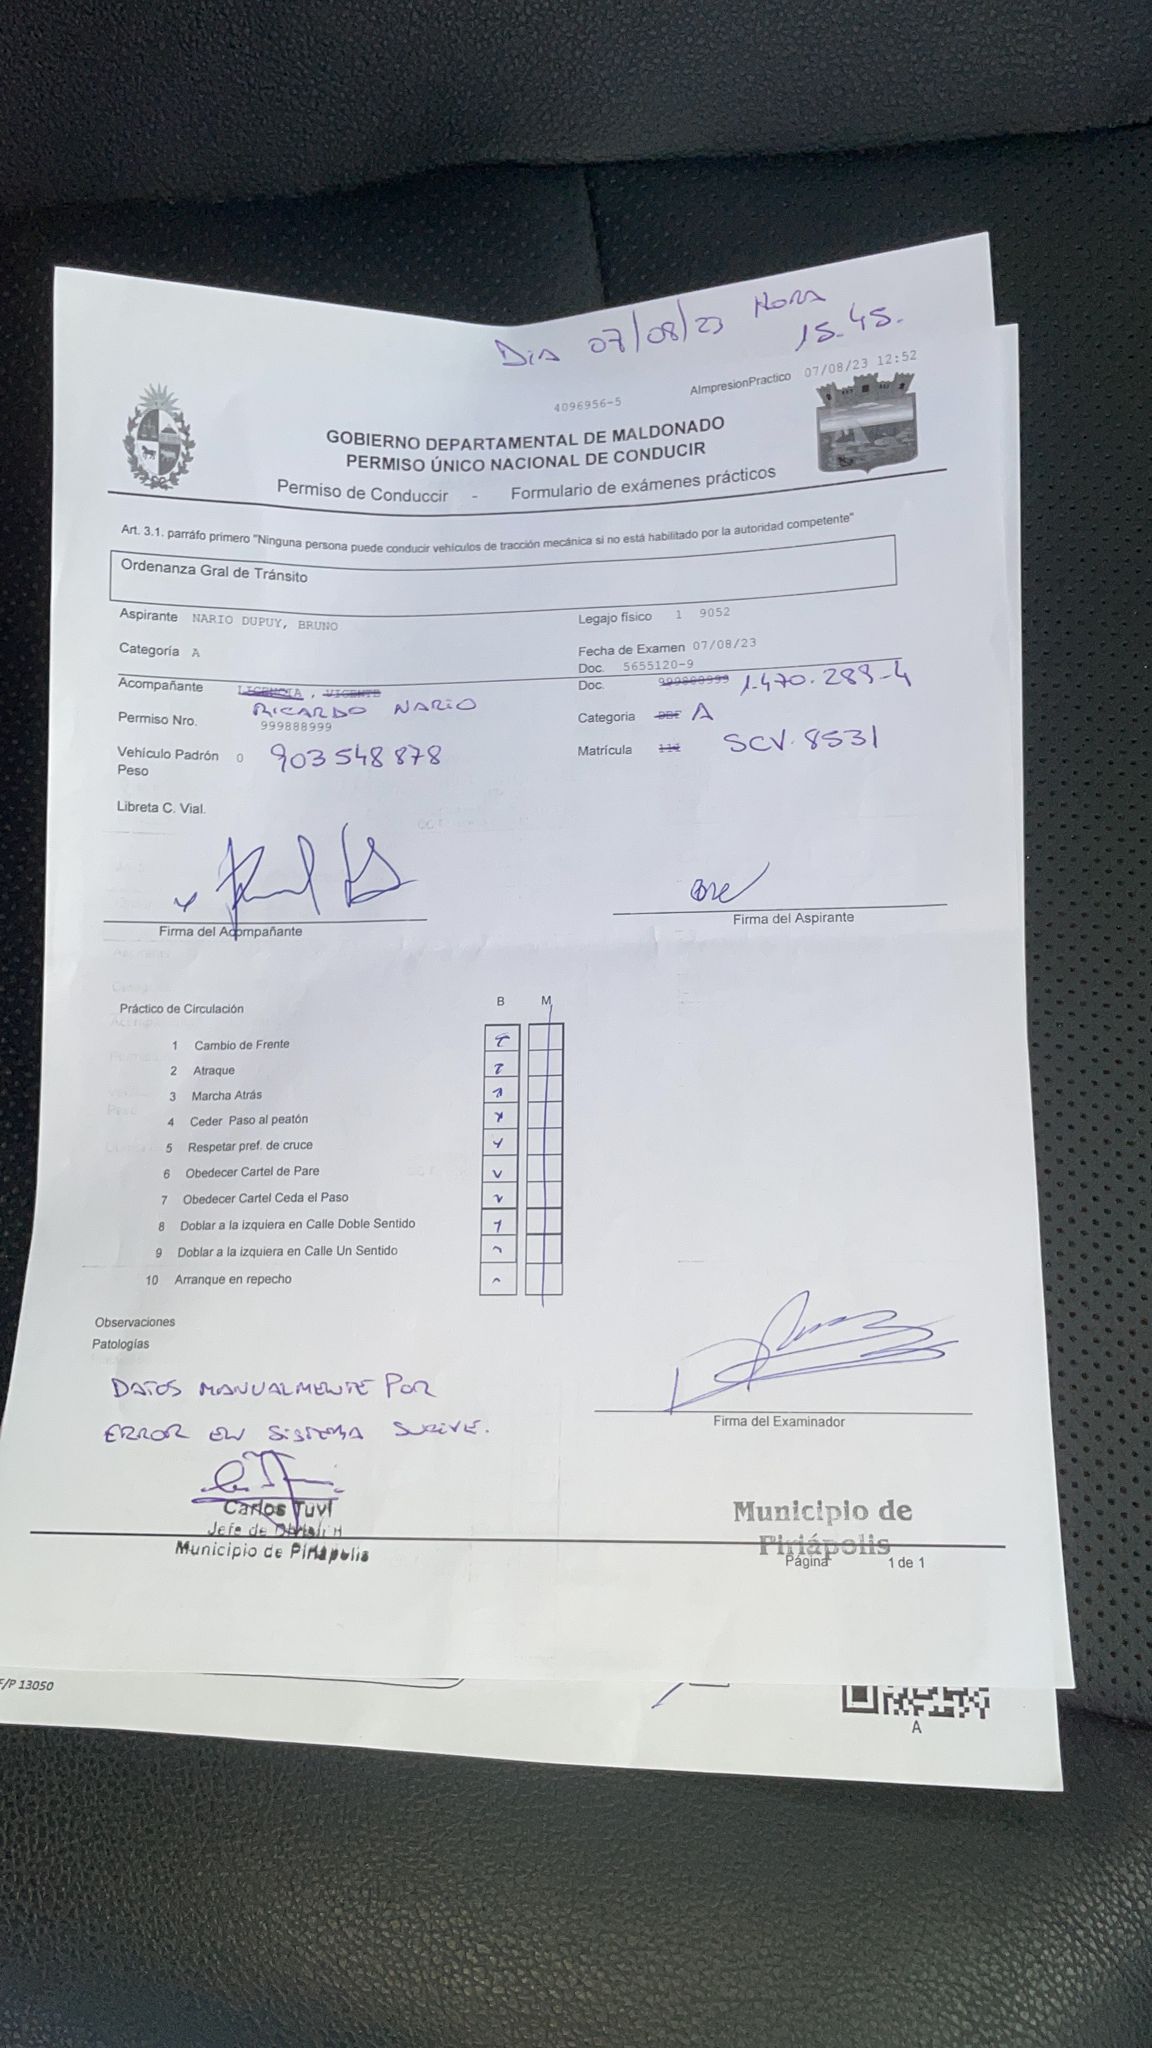 DIA 07/08/23 HORA
15.45.
AImpresionPractico 07/08/23 12:52
4096956-5
GOBIERNO DEPARTAMENTAL DE MALDONADO
PERMISO ÚNICO NACIONAL DE CONDUCIR
Permiso de Conduccir - Formulario de exámenes prácticos
Art. 3.1. parráfo primero "Ninguna persona puede conducir vehículos de tracción mecánica si no está habilitado por la autoridad competente"
Ordenanza Gral de Tránsito
Aspirante NARIO DUPUY, BRUNO Legajo físico 1 9052
Categoría A Fecha de Examen 07/08/23
Doc. 5655120-9
Acompañante LICENCIA , VIGENTE Doc. 999888999 1.470.289-4
RICARDO NARIO
Permiso Nro. 999888999 Categoria A
Vehículo Padrón 0 903548878 Matrícula SCV.8531
Peso
Libreta C. Vial.
Firma del Acompañante Firma del Aspirante
Práctico de Circulación B M
1 Cambio de Frente
2 Atraque
3 Marcha Atrás
4 Ceder Paso al peatón
5 Respetar pref. de cruce
6 Obedecer Cartel de Pare
7 Obedecer Cartel Ceda el Paso
8 Doblar a la izquiera en Calle Doble Sentido
9 Doblar a la izquiera en Calle Un Sentido
10 Arranque en repecho
Observaciones
Patologías
DATOS MANUALMENTE POR
ERROR EN SISTEMA SUCIVE.
Firma del Examinador
Carlos Tuvi
Jefe de
Municipio de Piriápolis
Municipio de
Piriápolis
Página 1 de 1
F/P 13050
A